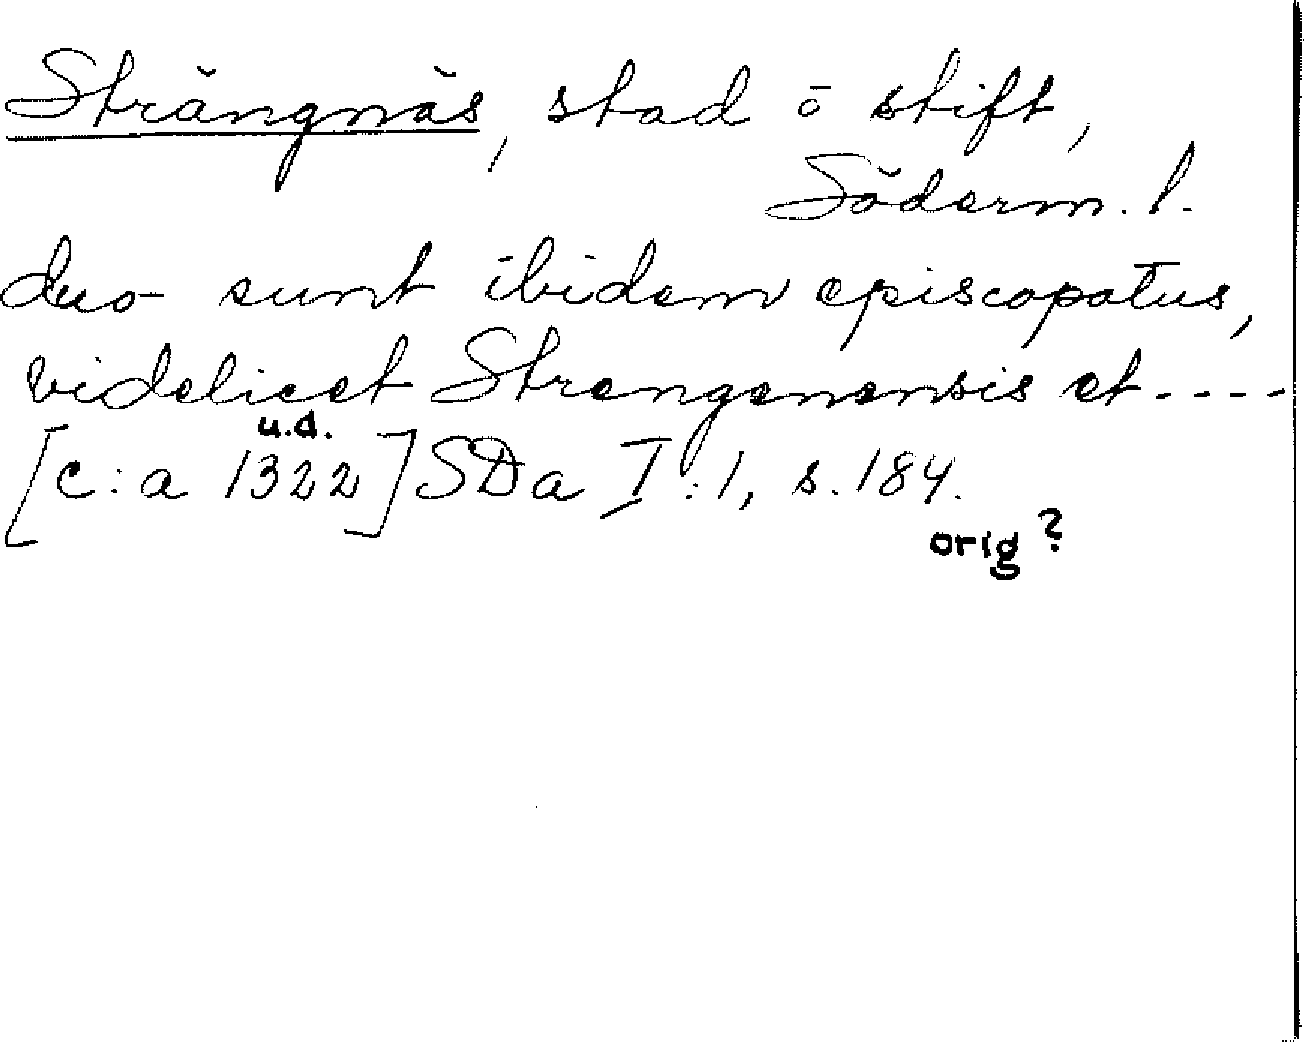 Strängnäs, stad o stift,
Söderm. l.
duo sunt ibidem episcopatus,
videlicet Strengenensis et ----
u.d.
[c:a 1322] SDa I:1, s. 184.
orig?